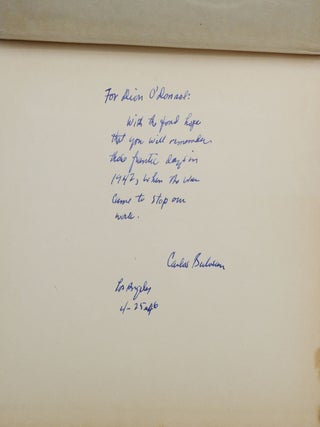 For Dion O'Donnel:
With the fond hope
that you will remember
those frantic days in
1942, when the war
came to stop our
work.
Carlos Bulosan
Los Angeles
4-25-46